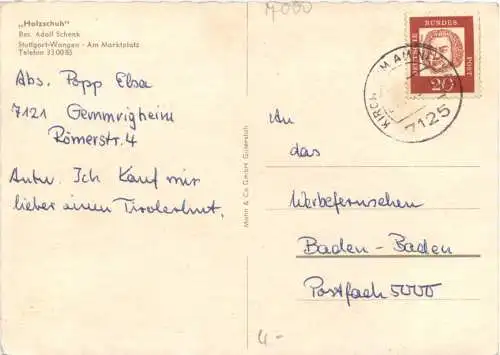 „Holzschuh"
Bes. Adolf Schenk
Stuttgart-Wangen - Am Marktplatz
Telefon 33 00 83
Abs. Popp Elsa
7121 Gemmrigheim
Römerstr. 4
Antw. Ich kauf mir
lieber einen Tirolerhut.
DEUTSCHE BUNDESPOST
20
KIRCHHEIM AM NECKAR
7125
An
das
Werbefernsehen
Baden-Baden
Postfach 5000
4,-